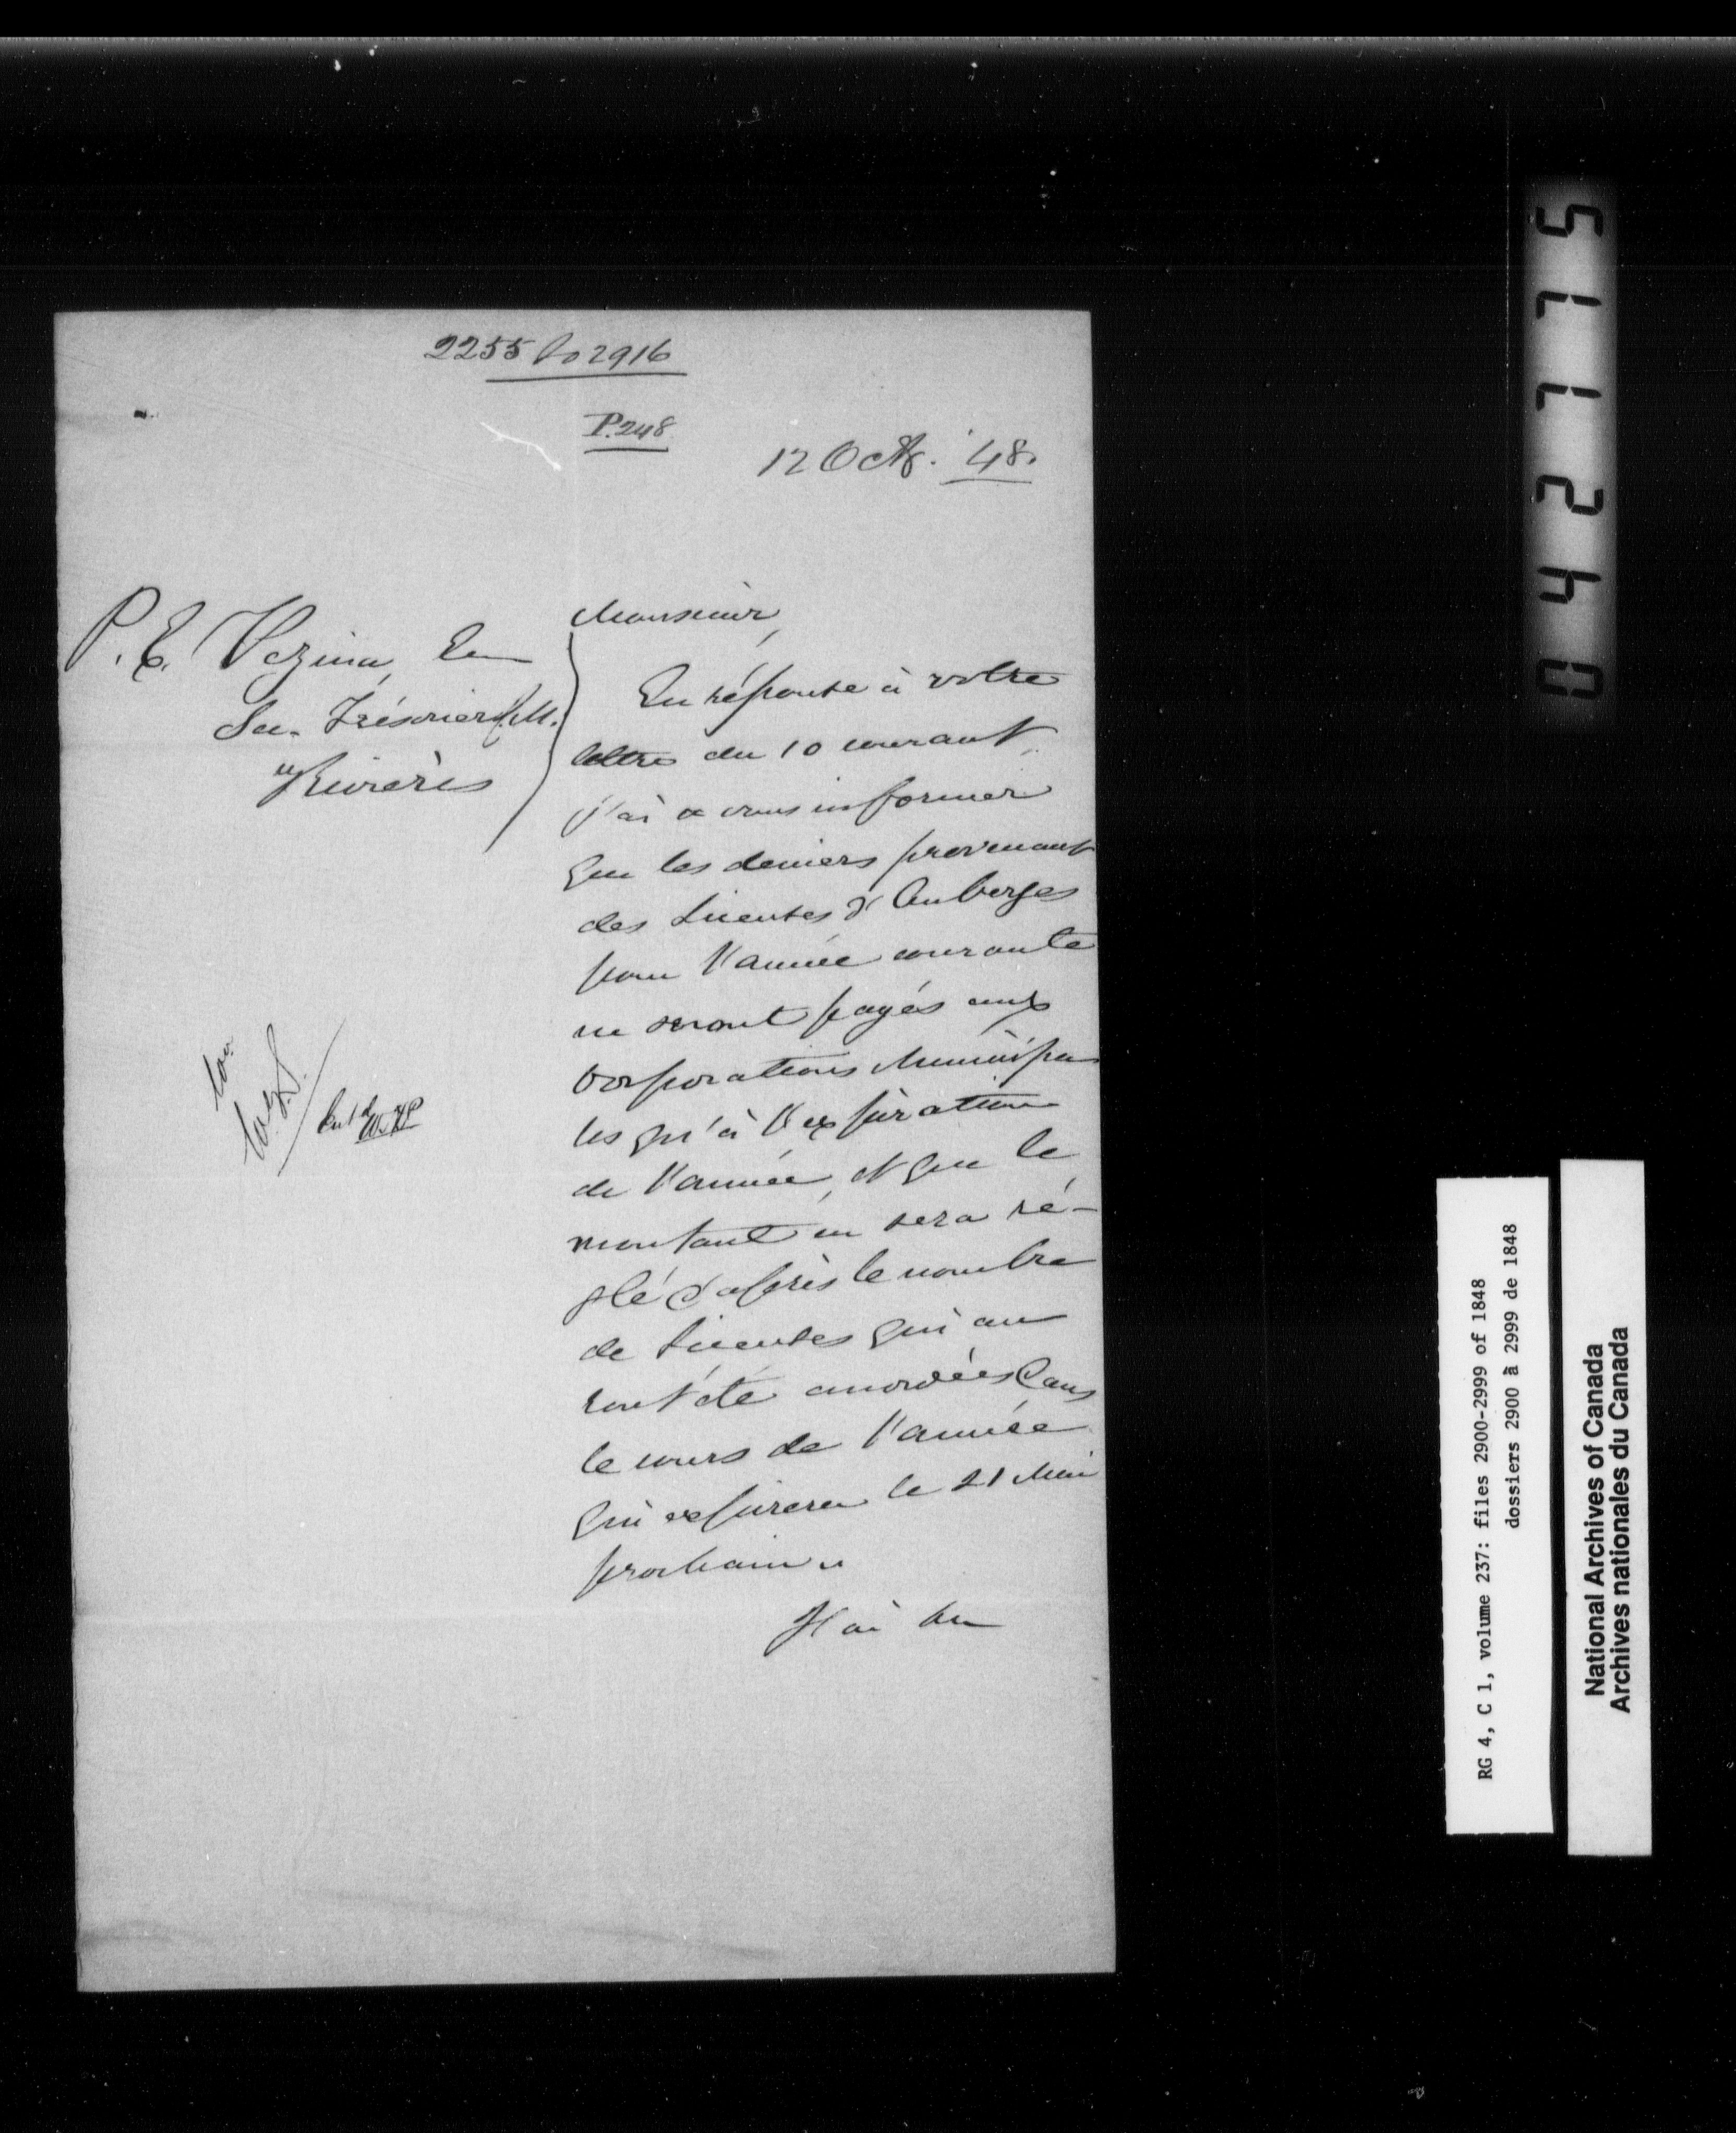 2255 to 2916
P.248
12 Oct. '48.
P. E. Vezina,
Sec. Trésorier C.M.
Rivières
Monsieur,
En réponse à votre
lettre du 10 courant
j'ai a vous informer
que les deniers provenant
des Licenses d'Auberges
pour l'année courante
ne seront payés aux
Corporations Municipa
les qu'à l'expiration
de l'année, et que le
montant en sera ré-
glé d'après le nombre
de Licenses qui au
ront été accordées dans
le cours de l'année
qui expirera le 21 Mai
prochain
J'ai
Entd
042775
RG 4, C 1, volume 237: files 2900-2999 of 1848
dossiers 2900 à 2999 de 1848
National Archives of Canada
Archives nationales du Canada